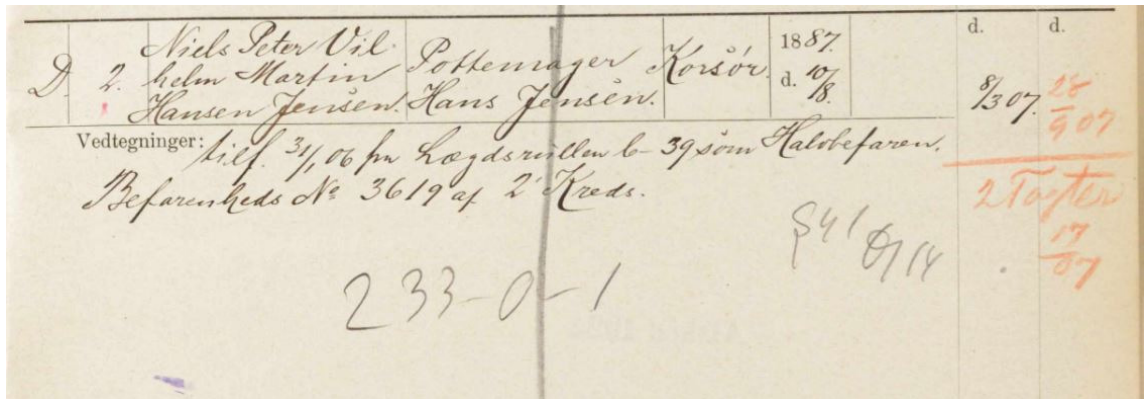 D. 2. Niels Peter Vil-
helm Martin
Hansen Jensen.
Pottemager
Hans Jensen.
Korsør.
1887.
d. 10/8.
d.
8/3 07.
d.
28/9 07
Vedtegninger: tilf. 31/1 06 fra Lægdsrullen 6-39 som Halvbefaren.
Befarenheds No 3619 af 2' Kreds.
2 Togter
17
07
§41
14
233-0-1